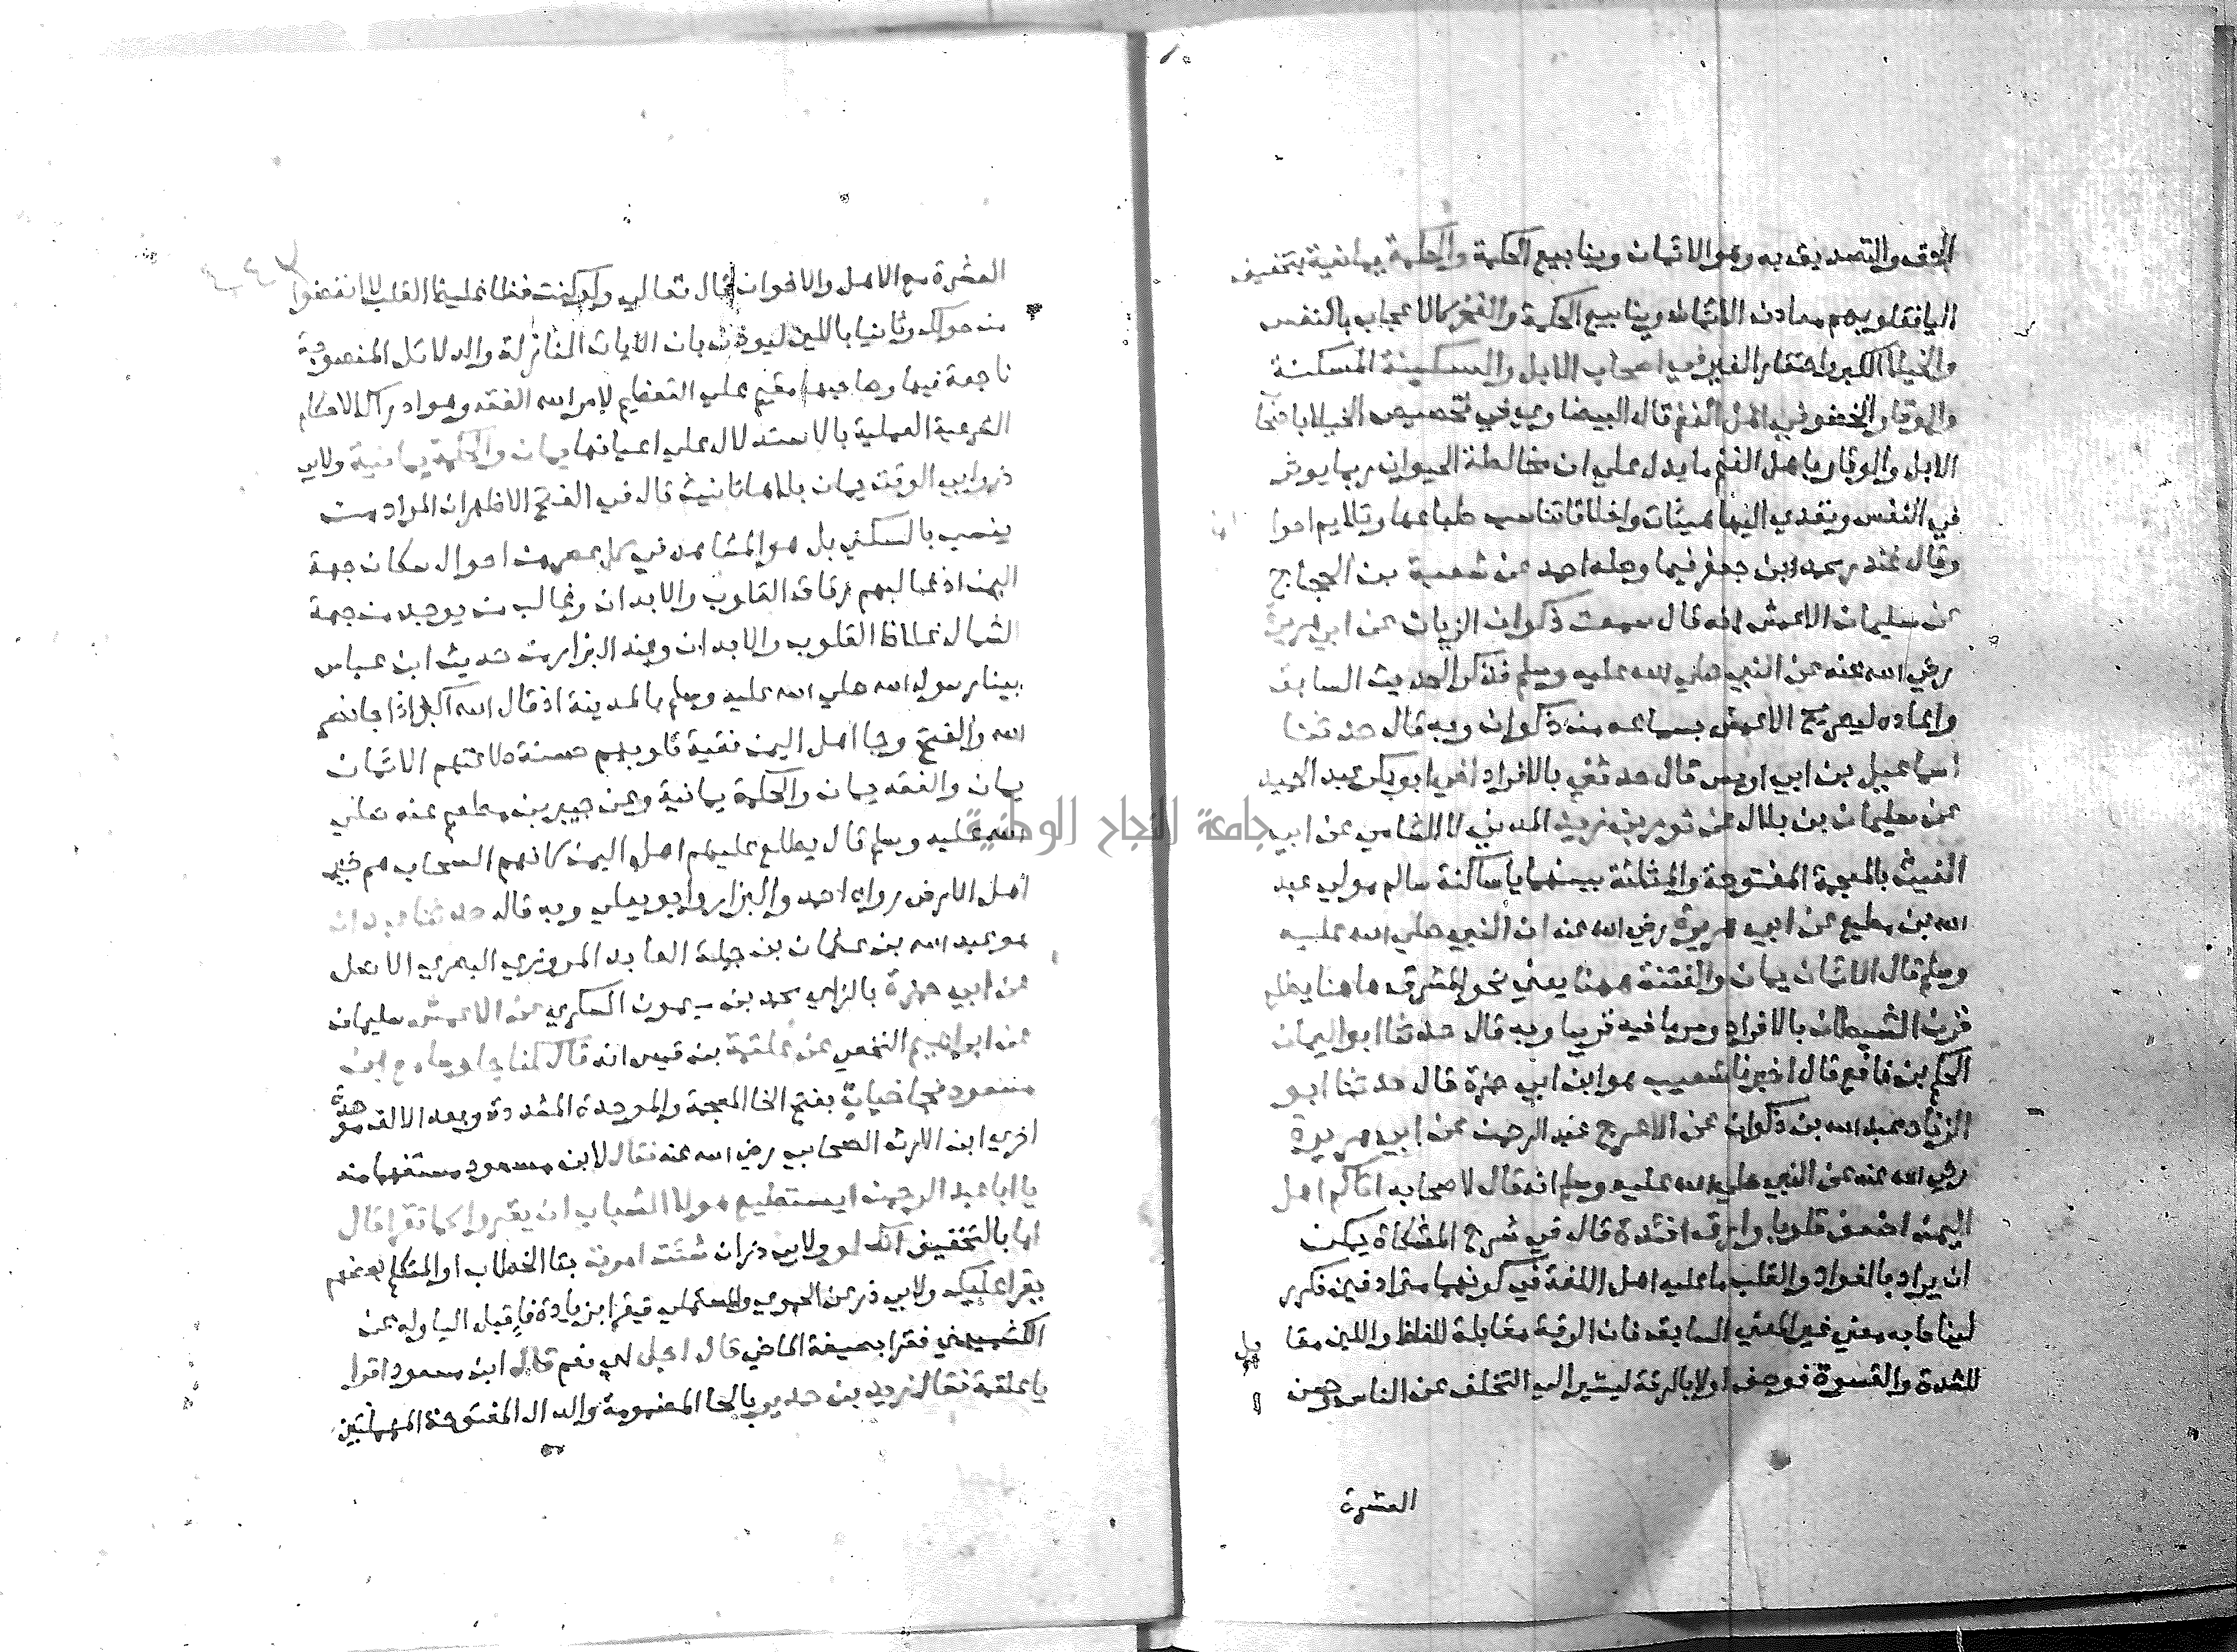 الحق والتصديق به وهو الايمان وينابيع الحكمة والحكمة يمانية بتخفيف
اليا فقلوبهم معادن الايمان وينابيع الحكمة والفخر كالاعجاب بالنفس
والخيلا الكبر واحتقار الغير في اصحاب الابل والسكينة المسكنة
والوقار والخضوع في اهل الغنم قال البيضاوي في تخصيص الخيلا باصحاب
الابل والوقار باهل الغنم ما يدل علي ان مخالطة الحيوان ربما يوثر
في النفس ويتعدي اليها هيئات واخلاقا تناسب طباعها وتلايم احوا
وقال غندر محمد بن جعفر فيما وصله احمد عن شعبة بن الحجاج
عن سليمان الاعمش انه قال سمعت ذكوان الزيات عن ابي هريرة
رضي الله عنه عن النبي صلي الله عليه وسلم فذكر الحديث السابق
واعاده ليصرح الاعمش بسماعه من ذكوان وبه قال حدثنا
اسماعيل بن ابي اويس قال حدثني بالافراد اخي ابو بكر عبد الحميد
عن سليمان بن بلال عن ثور بن زيد المدني لا الشامي عن ابي
الغيث بالمعجمة المفتوحة والمثلثة بينهما يا ساكنة سالم مولي عبد
الله بن مطيع عن ابي هريرة رضي الله عنه ان النبي صلي الله عليه
وسلم قال الايمان يمان والفتنة ههنا يعني نحو المشرق هاهنا يطلع
قرن الشيطان بالافراد ومر ما فيه قريبا وبه قال حدثنا ابو اليمان
الحكم بن نافع قال اخبرنا شعيب هو ابن ابي حمزة قال حدثنا ابو
الزناد عبد الله بن ذكوان عن الاعرج عبد الرحمن عن ابي هريرة
رضي الله عنه عن النبي صلي الله عليه وسلم انه قال لاصحابه اتاكم اهل
اليمن اضعف قلوبا وارق افئدة قال في شرح المشكاة يمكن
ان يراد بالفواد والقلب ما عليه اهل اللغة في كونهما مترادفين فكرر
لينا طبه معني غير المعني السابق فان الرقة مقابلة للغلظ واللين مقا بل
للشدة والقسوة فوصف اولا بالرقة ليشير الي التخلف عن الناس وحسن
العشرة
العشرة مع الاهل والاخوان قال تعالي ولو كنت فظا غليظ القلب لانفضوا
من حولك وثانيا باللين ليوذن بان الايات المنازلة والدلائل المنصوبة
ناجعة فيها وصاحبها مقيم علي التعظيم لامر الله الفقه وهو ادراك الاحكام
الشرعية العملية بالاستدلال علي اعيانها يمان والحكمة يمانية ولابي
ذر وابي الوقت يمان بلا ها تانيث قال في الفتح الاظهر ان المراد من
ينسب بالسكني بل هو المشاهد في كل عصر من احوال سكان جهة
اليمن اذ غالبهم رقاق القلوب والابدان وغالب من يوجد من جهة
الشمال غلاظ القلوب والابدان وعند البزار من حديث ابن عباس
بينا رسول الله صلي الله عليه وسلم بالمدينة اذ قال الله اكبر اذا جا نصر
الله والفتح وجا اهل اليمن نقية قلوبهم حسنة طاعتهم الايمان
يمان والفقه يمان والحكمة يمانية وعن جبير بن مطعم عنه صلي
الله عليه وسلم قال يطلع عليهم اهل اليمن كانهم السحاب هم خير
اهل الارض رواه احمد والبزار وابو يعلي وبه قال حدثنا عبدان
هو عبد الله بن عثمان بن جبلة العابد المروزي البصري الاصل
عن ابي حمزة بالزاي محمد بن ميمون السكري عن الاعمش سليمان
عن ابراهيم النخعي عن علقمة بن قيس انه قال كنا جلوسا مع ابن
مسعود فجا خباب بفتح الخا المعجمة والموحدة المشددة وبعد الالف موحدة
اخري ابن الارت الصحابي رضي الله عنه فقال لابن مسعود مستفهما منه
يا ابا عبد الرحمن ايستطيع هولا الشباب ان يقروا كما تقرا قال
اما بالتخفيف انك لو ولابي ذر ان شئت امرت بتا الخطاب او المتكلم بعضهم
يقرا عليك ولابي ذر عن الحموي والمستملي فيقرا بزيادة فا قبل اليا وله عن
الكشميهني فقرا بصيغة الماضي قال اجل اي نعم قال ابن مسعود اقرا
يا علقمة فقال زيد بن حدير بالحا المضمومة والدال المفتوحة المهملتين
جامعة النجاح الوطنية